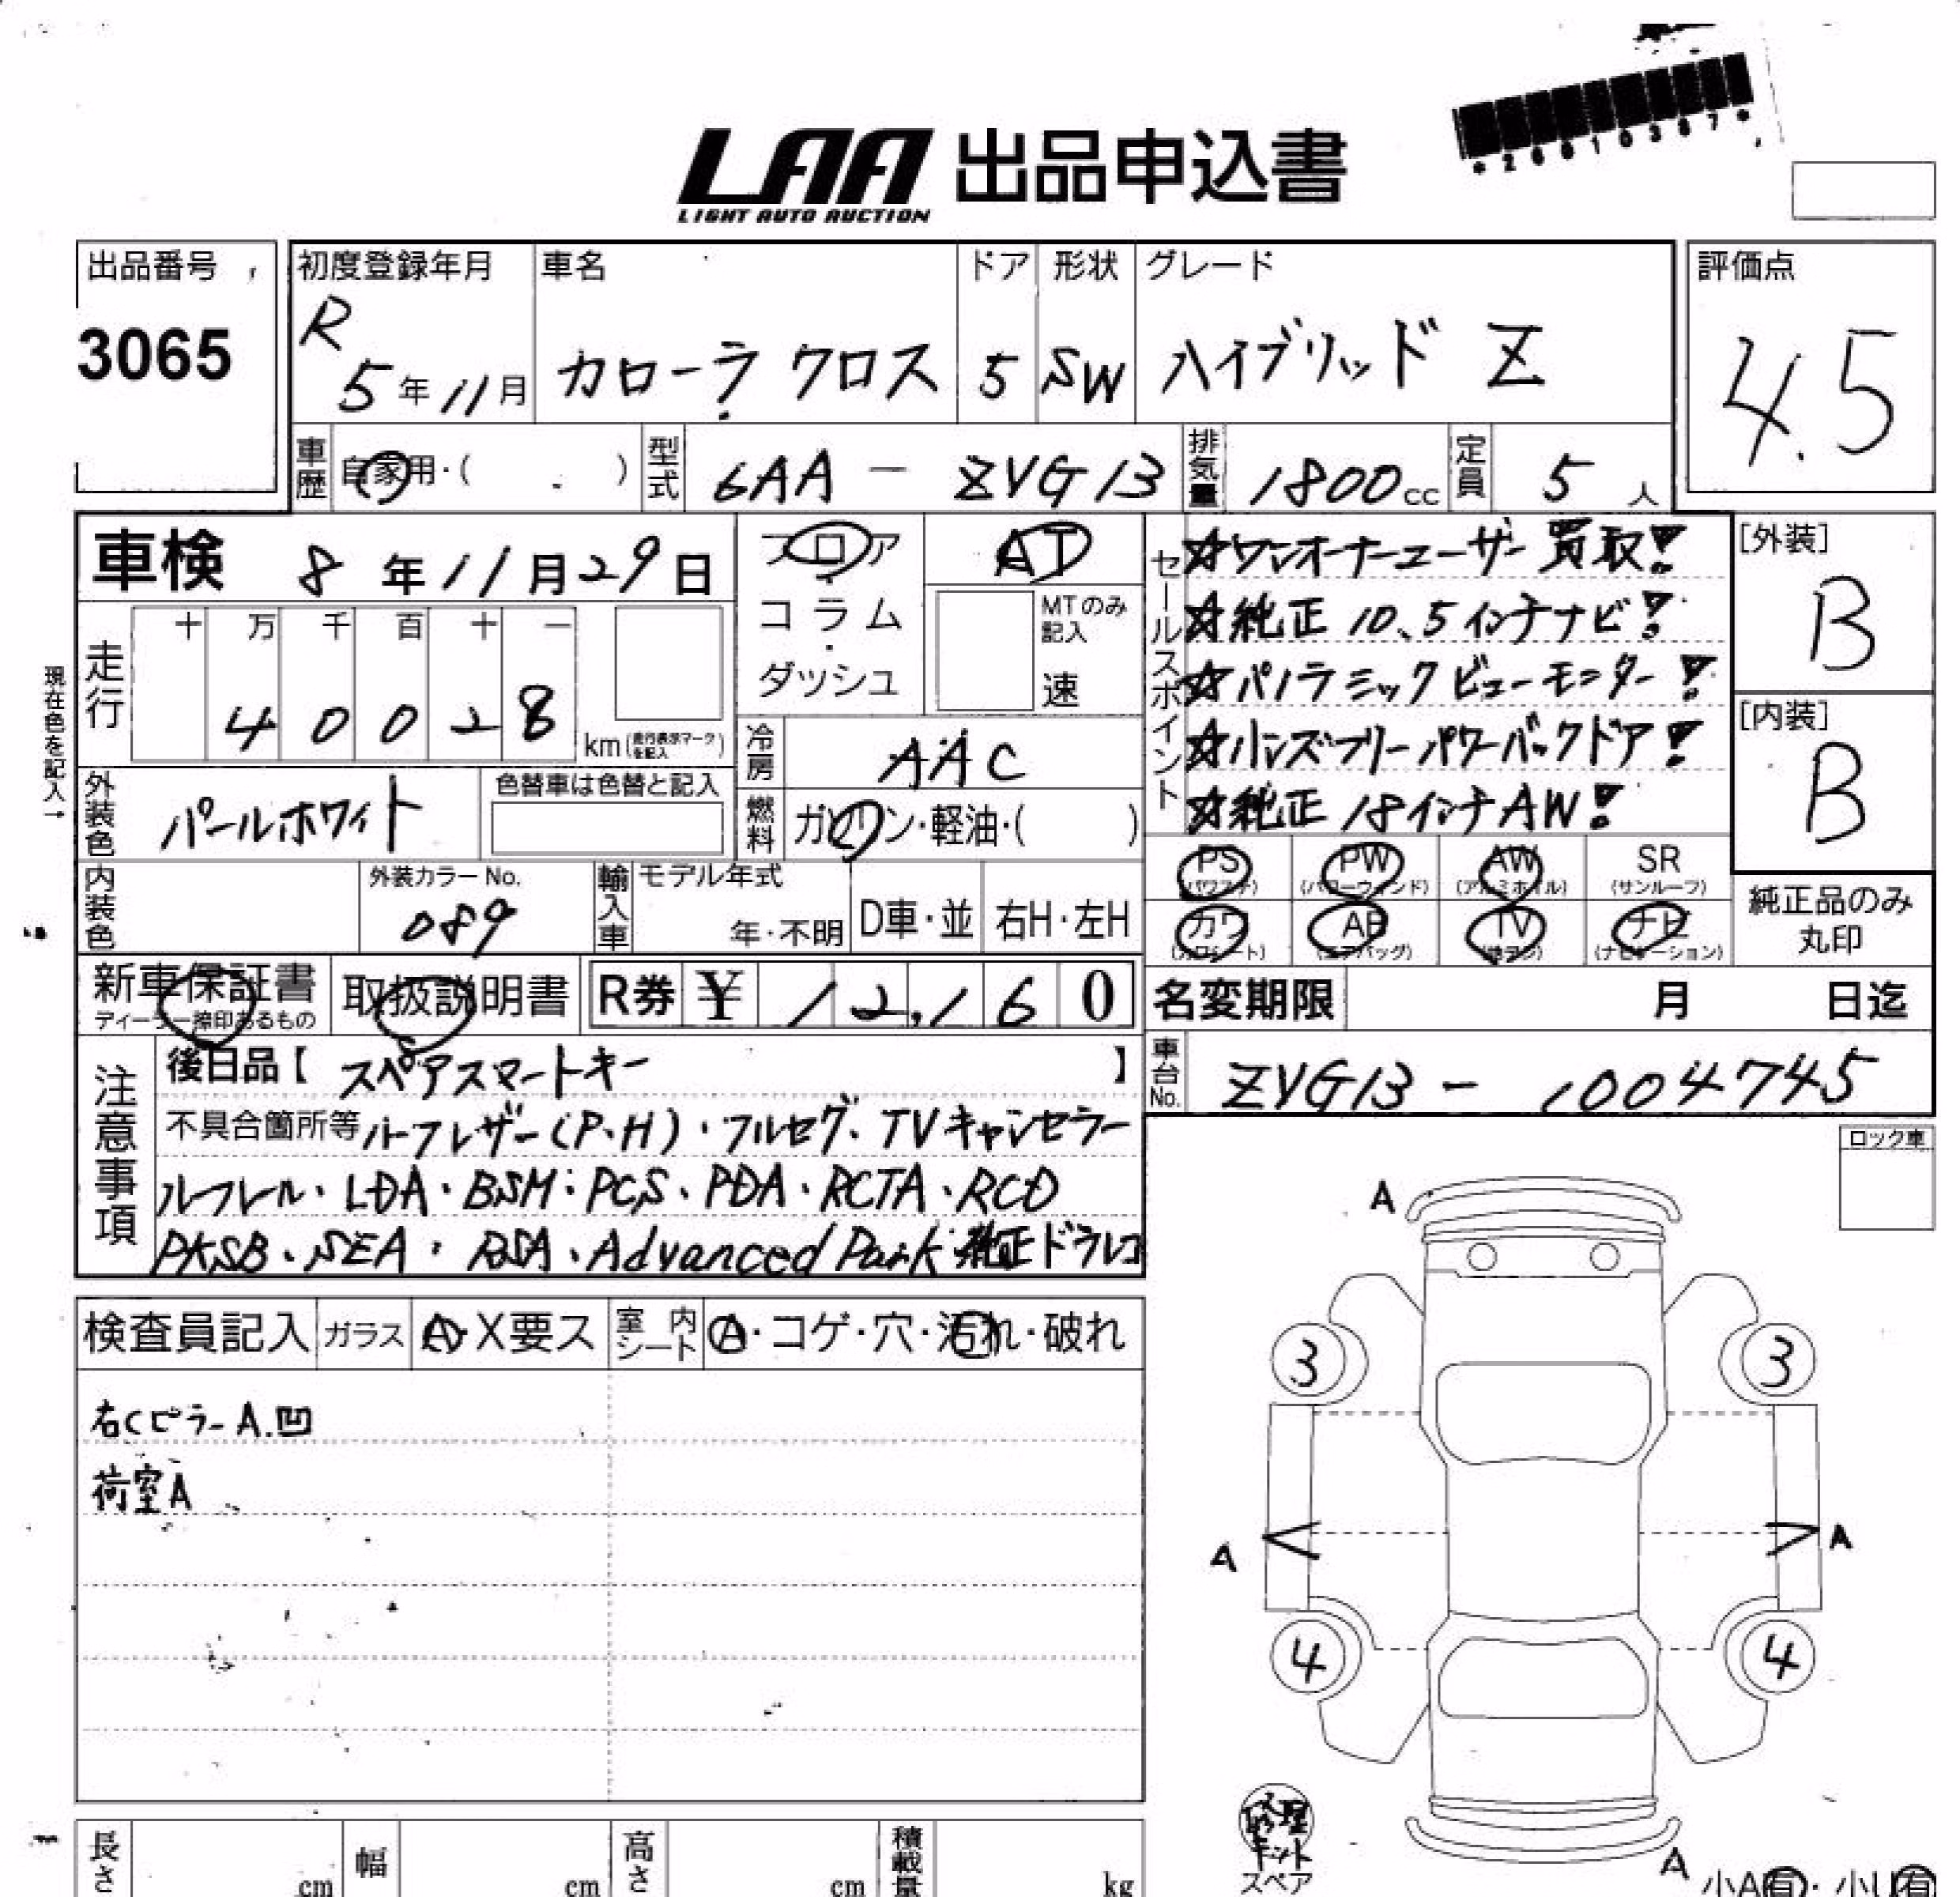 LAA 出品申込書
LIGHT AUTO AUCTION
*26010387*
出品番号
3065
初度登録年月
R
5年11月
車名
カローラ クロス
ドア
5
形状
SW
グレード
ハイブリッド Z
評価点
4.5
車歴
自家用・( )
型式
6AA - ZVG13
排気量
1800cc
定員
5人
車検 8年11月29日
フロア
コラム
ダッシュ
AT
MTのみ記入
速
セールスポイント
☆ワンオーナーユーザー買取!
☆純正 10.5インチナビ!
☆パノラミックビューモニター!
☆ハンズフリーパワーバックドア!
☆純正 18インチAW!
[外装]
B
[内装]
B
現在色を記入→
走行
十 万 千 百 十 一
4 0 0 2 8
km(走行表示マークを記入)
冷房
AAC
外装色
パールホワイト
色替車は色替と記入
燃料
ガソリン・軽油・( )
内装色
外装カラーNo.
089
輸入車
モデル年式
年・不明
D車・並
右H・左H
PS (パワステ)
PW (パワーウィンド)
AW (アルミホイル)
SR (サンルーフ)
カワ (カワシート)
AB (エアバッグ)
TV (地デジ)
ナビ (ナビゲーション)
純正品のみ
丸印
新車保証書
ディーラー捺印あるもの
取扱説明書
R券 ¥ 12,160
名変期限 月 日迄
注意事項
後日品【スペアスマートキー】
不具合箇所等 ハーフレザー(P.H)・フルセグ・TVキャンセラー
ルーフレール・LDA・BSM・PCS・PDA・RCTA・RCD
PKSB・SEA・RSA・Advanced Park・純正ドラレコ
車台No.
ZVG13 - 1004745
ロック車
検査員記入
ガラス
A・X要ス
室内シート
A・コゲ・穴・汚れ・破れ
右CピラーA.凹
荷室A
A
3
3
A
A
4
4
A
修理キット
スペア
小A有・小U有
長さ
cm
幅
cm
高さ
cm
積載量
kg